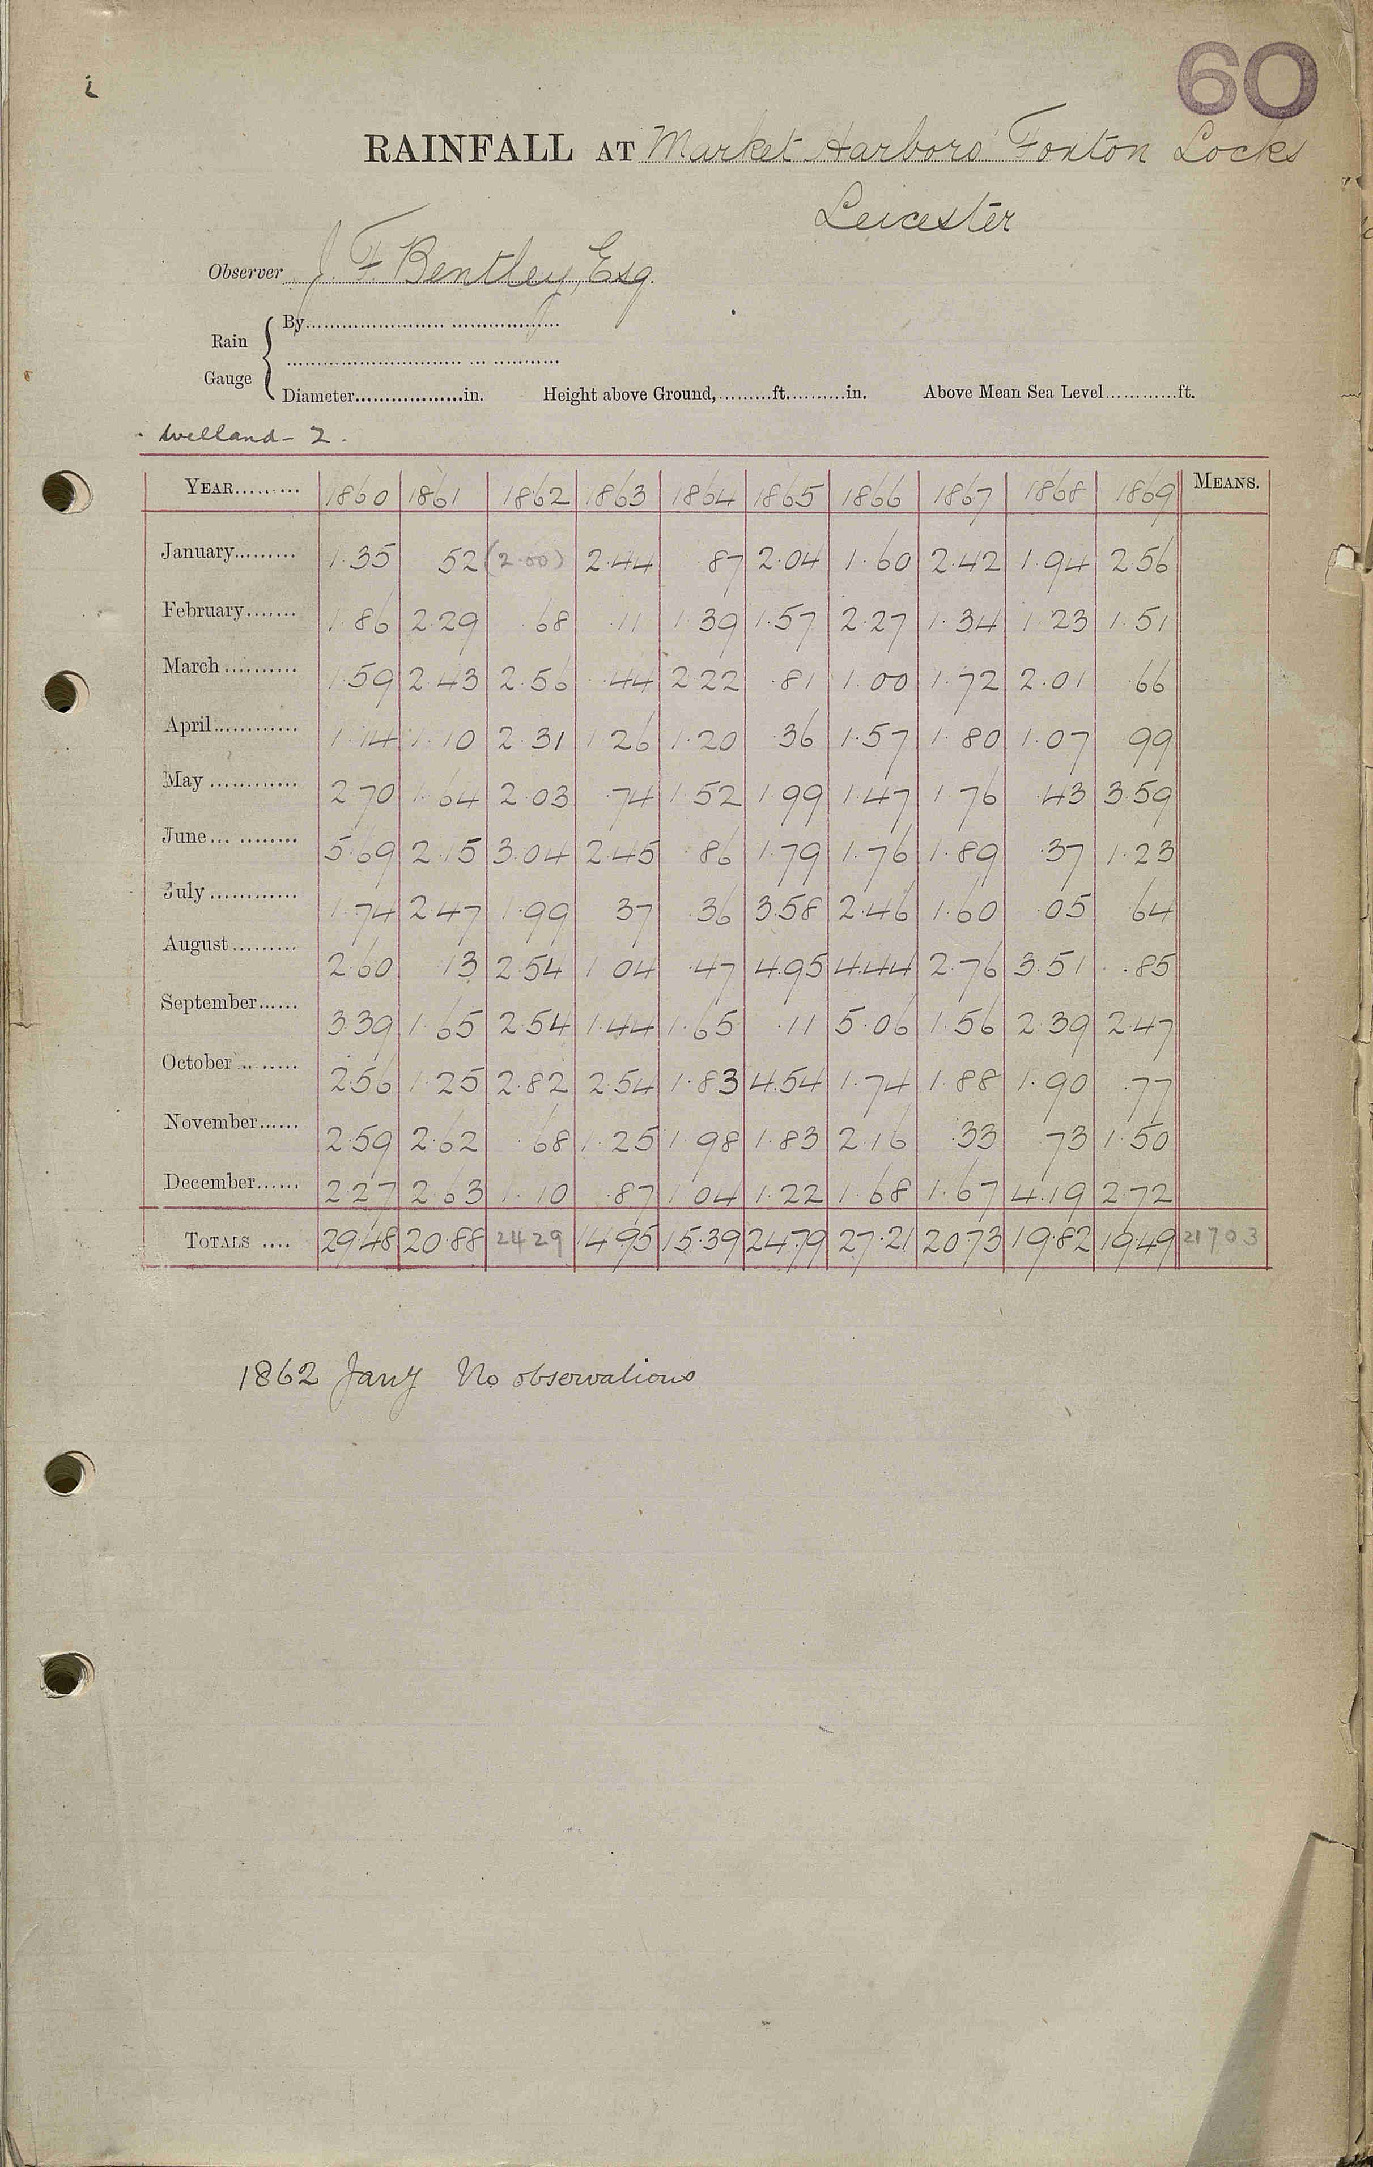 60
i
RAINFALL AT Market Harboro' Foxton Locks
Leicester
Observer J. F. Bentley, Esq.
Rain Gauge { By
Diameter in. Height above Ground, ft. in. Above Mean Sea Level ft.
Welland - 2.
YEAR 1860 1861 1862 1863 1864 1865 1866 1867 1868 1869 MEANS.
January 1.35 52 (2.00) 2.44 87 2.04 1.60 2.42 1.94 2.56
February 1.86 2.29 .68 .11 1.39 1.57 2.27 1.34 1.23 1.51
March 1.59 2.43 2.56 .44 2.22 .81 1.00 1.72 2.01 .66
April 1.14 1.10 2.31 1.26 1.20 .36 1.57 1.80 1.07 99
May 2.70 1.64 2.03 .74 1.52 1.99 1.47 1.76 .43 3.59
June 5.69 2.15 3.04 2.45 .86 1.79 1.76 1.89 .37 1.23
July 1.74 2.47 1.99 37 .36 3.58 2.46 1.60 .05 64
August 2.60 .13 2.54 1.04 .47 4.95 4.44 2.76 3.51 .85
September 3.39 1.65 2.54 1.44 1.65 .11 5.06 1.56 2.39 2.47
October 2.56 1.25 2.82 2.54 1.83 4.54 1.74 1.88 1.90 .77
November 2.59 2.62 .68 1.25 1.98 1.83 2.16 .33 .73 1.50
December 2.27 2.63 1.10 .87 1.04 1.22 1.68 1.67 4.19 2.72
TOTALS 29.48 20.88 24 29 14.95 15.39 24.79 27.21 20.73 19.82 19.49 21703
1862 Jany No observations